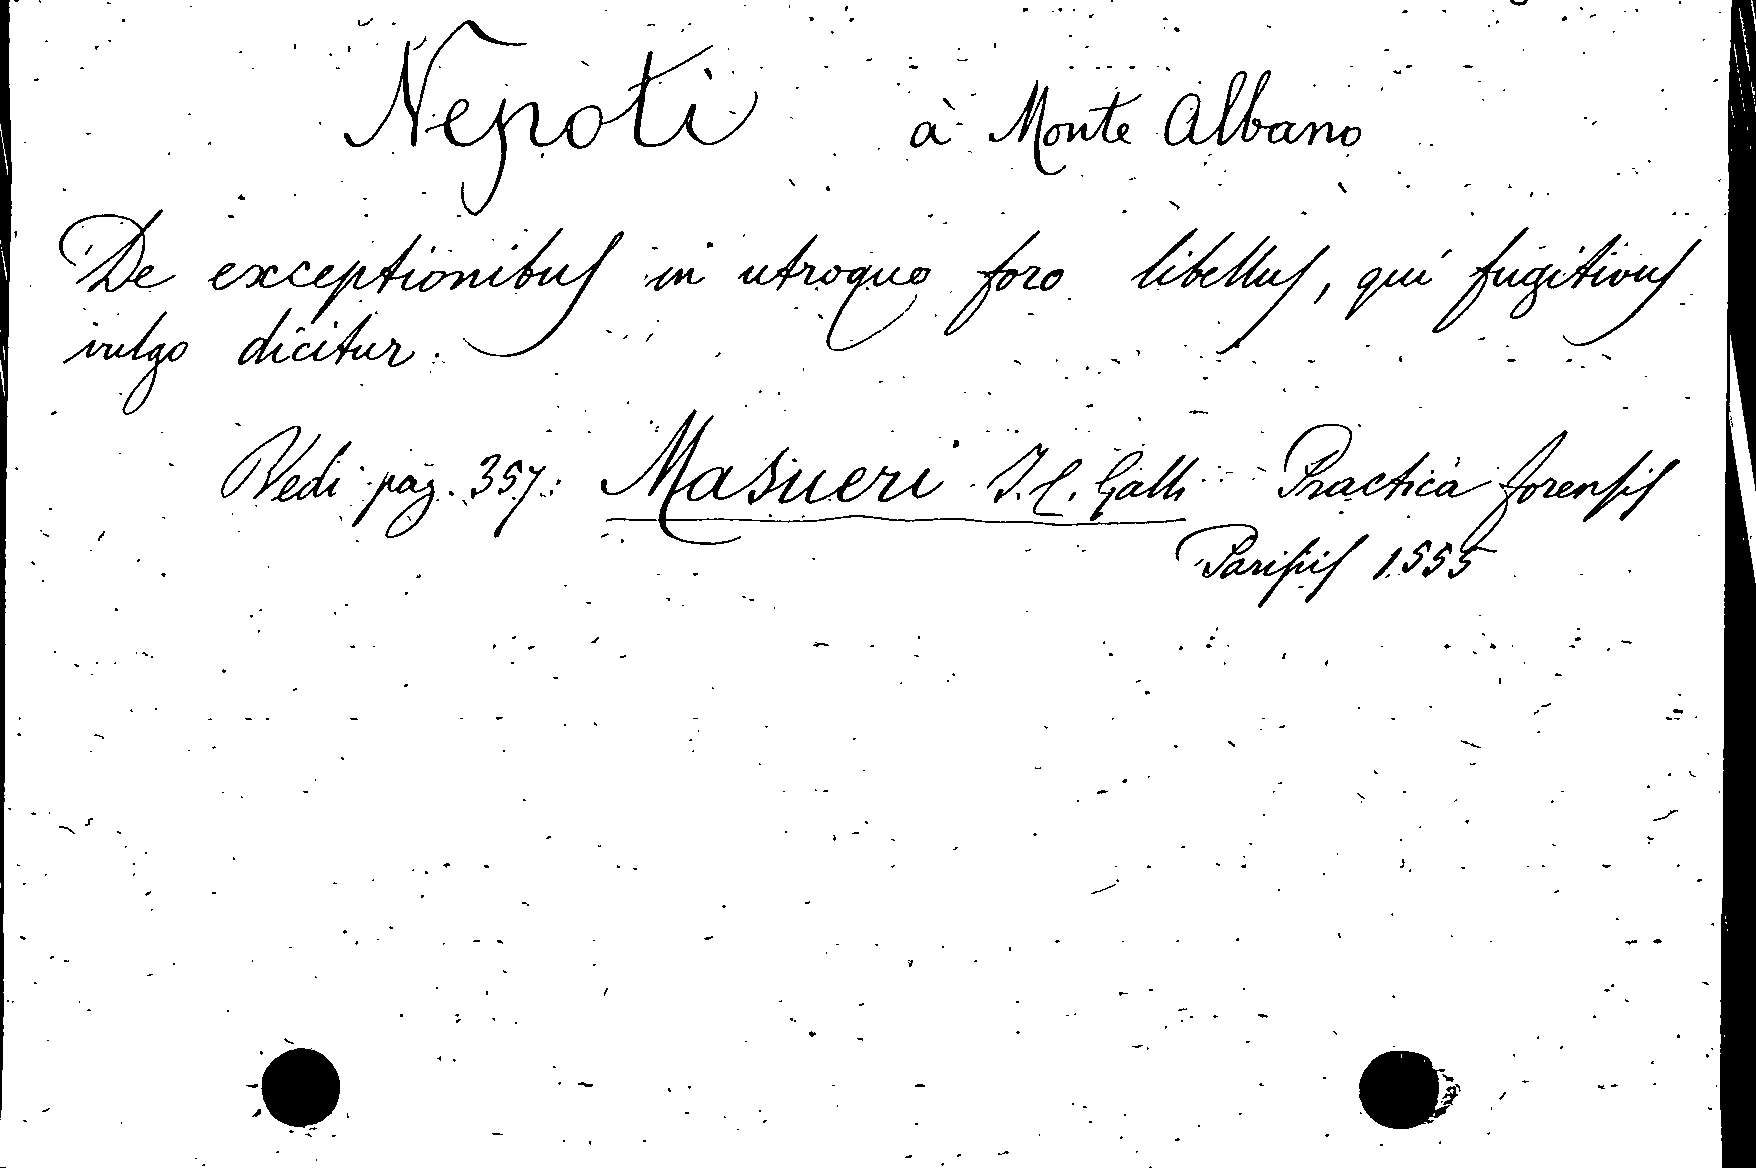 Nepoti à Monte Albano
De exceptionibus in utroque foro libellus, qui fugitivus
vulgo dicitur.
Vedi pag. 357: Masueri I.C. Galli Practica forensis
Parisiis 1555